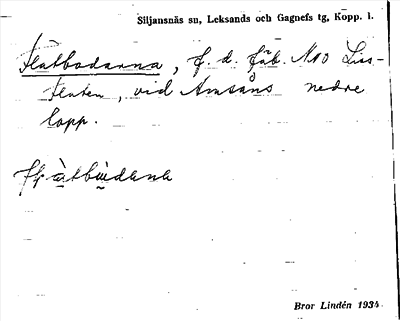 Siljansnäs sn, Leksands och Gagnefs tg, Kopp. l.
Flatbodarna, f. d. fäb. NO Liss-
flaten, vid Amsåns nedre
lopp.
Bror Lindén 1934.